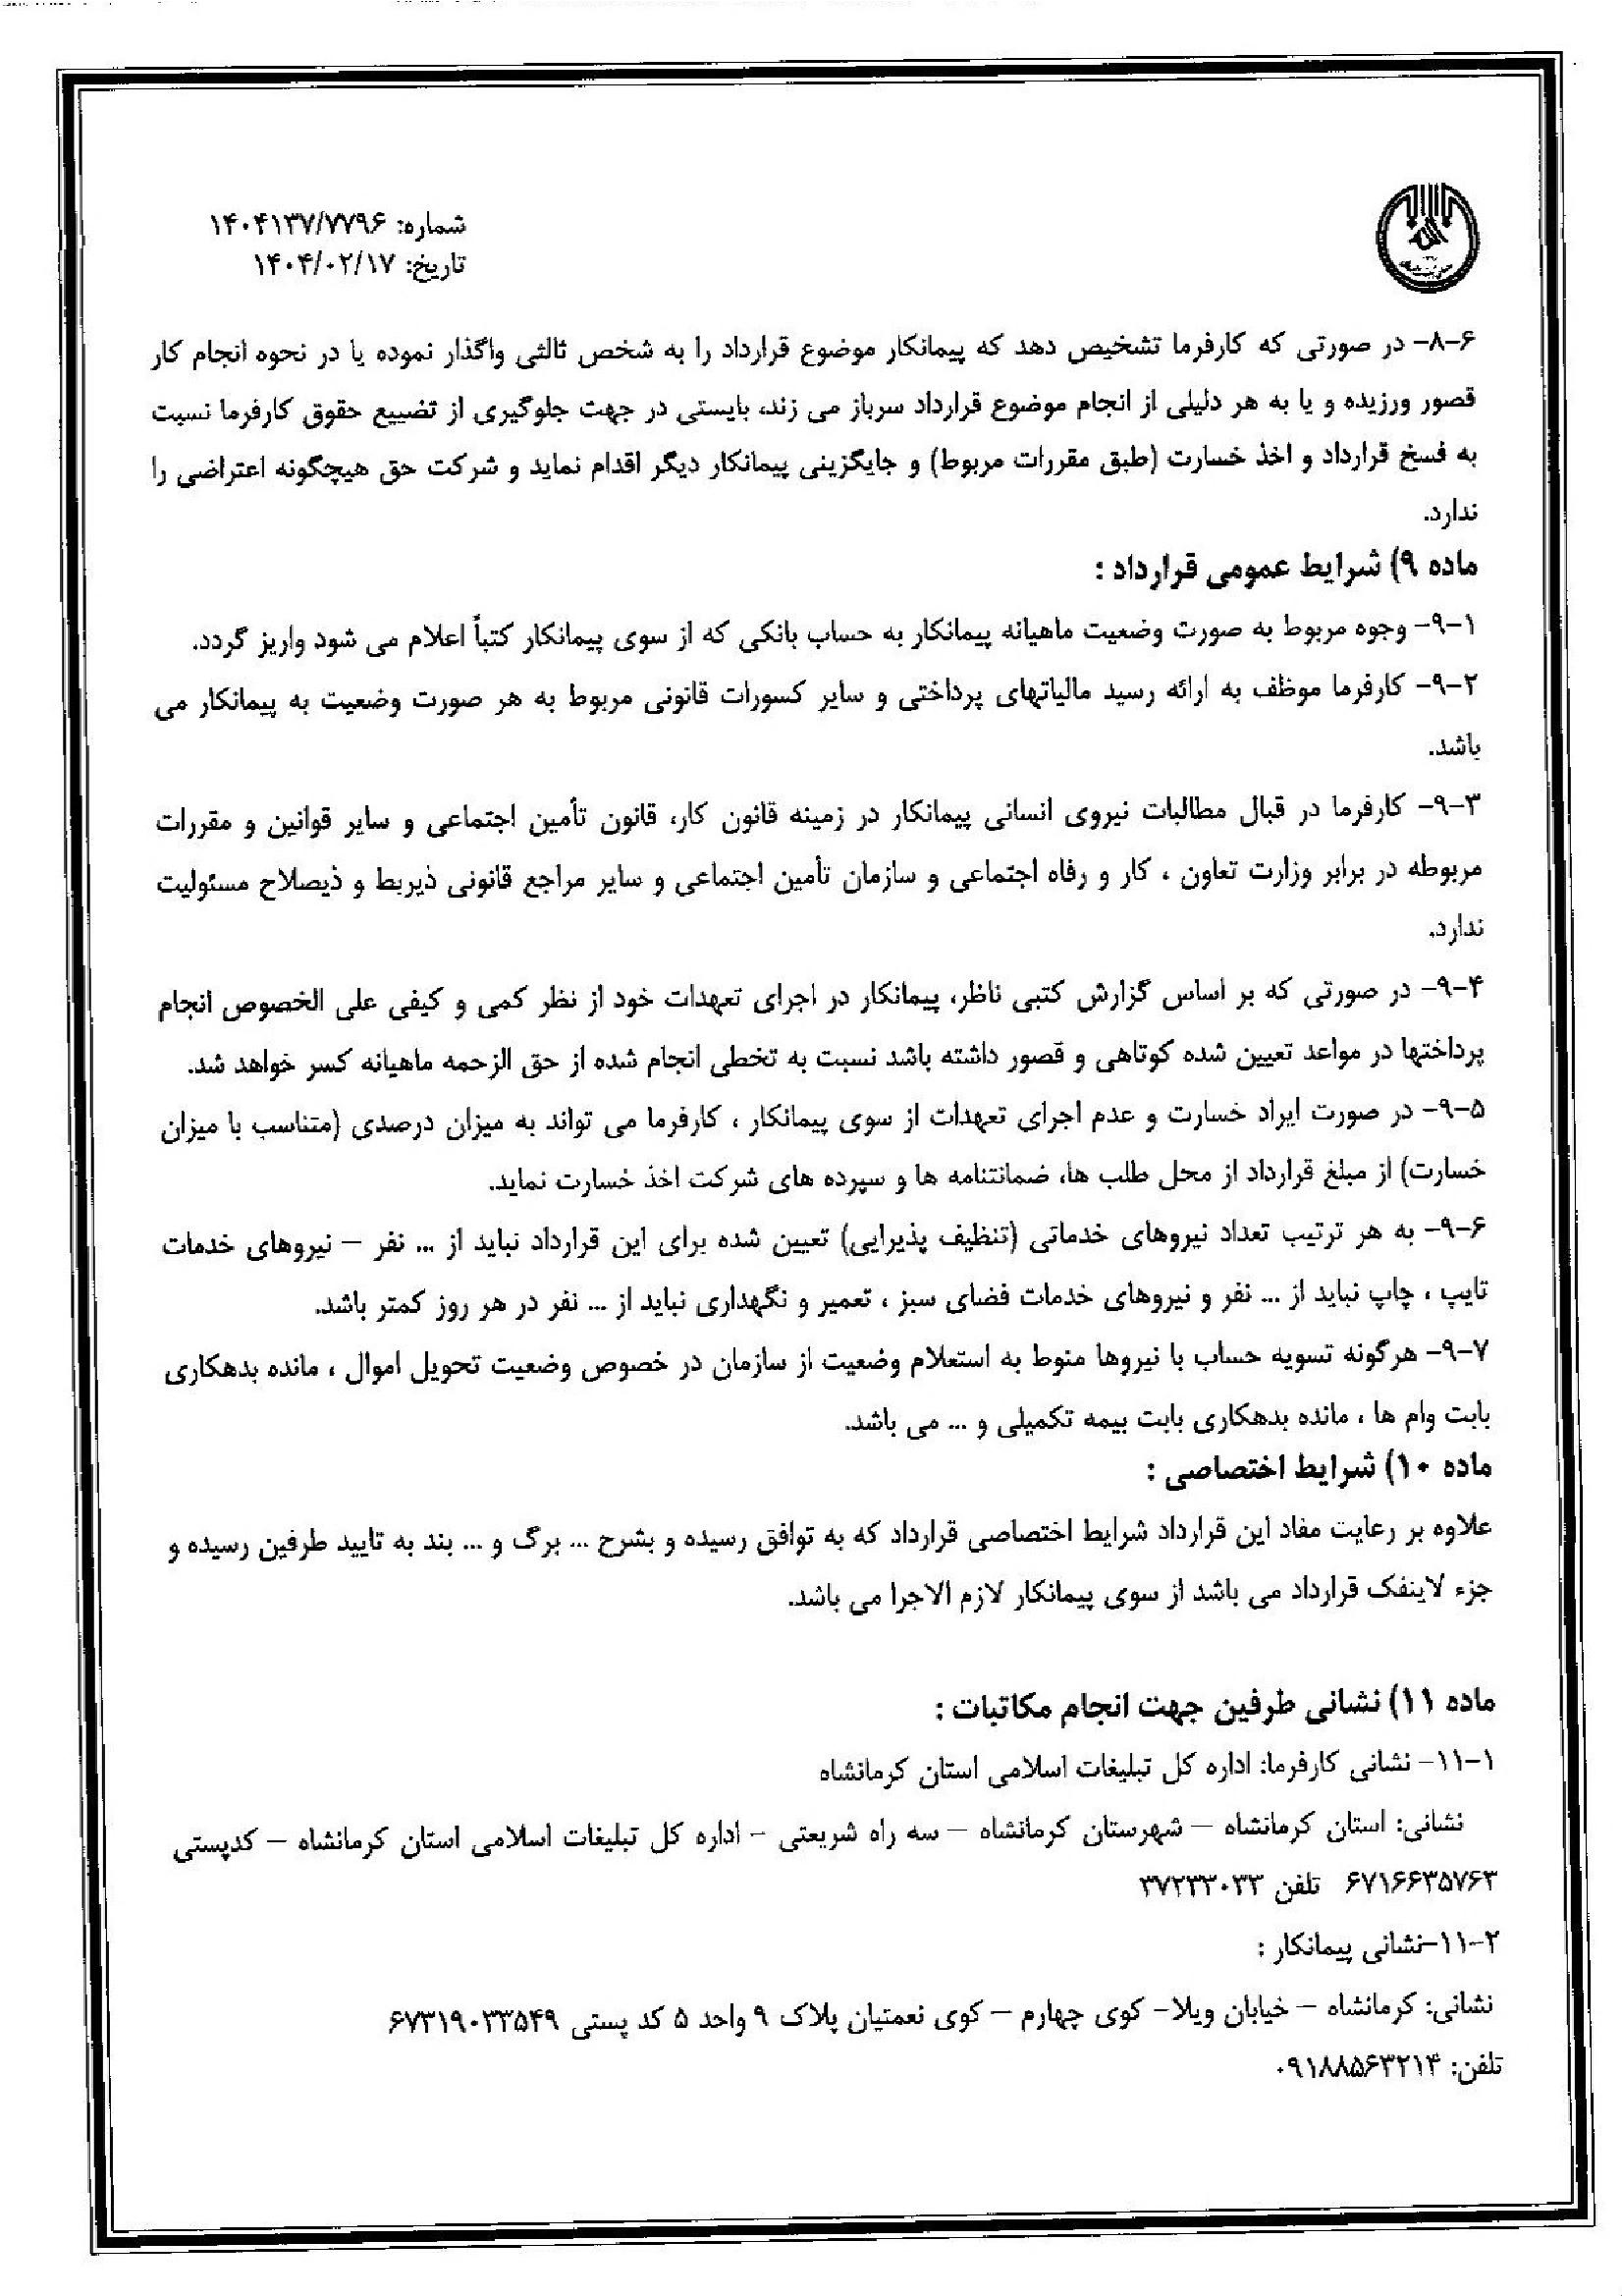 شماره: ۱۴۰۴۱۳۷/۷۷۹۶
تاریخ: ۱۴۰۴/۰۲/۱۷
۸-۶- در صورتی که کارفرما تشخیص دهد که پیمانکار موضوع قرارداد را به شخص ثالثی واگذار نموده یا در نحوه انجام کار
قصور ورزیده و یا به هر دلیلی از انجام موضوع قرارداد سرباز می زند، بایستی در جهت جلوگیری از تضییع حقوق کارفرما نسبت
به فسخ قرارداد و اخذ خسارت (طبق مقررات مربوط) و جایگزینی پیمانکار دیگر اقدام نماید و شرکت حق هیچگونه اعتراضی را
ندارد.
ماده ۹) شرایط عمومی قرارداد :
۹-۱- وجوه مربوط به صورت وضعیت ماهیانه پیمانکار به حساب بانکی که از سوی پیمانکار کتباً اعلام می شود واریز گردد.
۹-۲- کارفرما موظف به ارائه رسید مالیاتهای پرداختی و سایر کسورات قانونی مربوط به هر صورت وضعیت به پیمانکار می
باشد.
۹-۳- کارفرما در قبال مطالبات نیروی انسانی پیمانکار در زمینه قانون کار، قانون تأمین اجتماعی و سایر قوانین و مقررات
مربوطه در برابر وزارت تعاون ، کار و رفاه اجتماعی و سازمان تأمین اجتماعی و سایر مراجع قانونی ذیربط و ذیصلاح مسئولیت
ندارد.
۹-۴- در صورتی که بر اساس گزارش کتبی ناظر، پیمانکار در اجرای تعهدات خود از نظر کمی و کیفی علی الخصوص انجام
پرداختها در مواعد تعیین شده کوتاهی و قصور داشته باشد نسبت به تخطی انجام شده از حق الزحمه ماهیانه کسر خواهد شد.
۹-۵- در صورت ایراد خسارت و عدم اجرای تعهدات از سوی پیمانکار ، کارفرما می تواند به میزان درصدی (متناسب با میزان
خسارت) از مبلغ قرارداد از محل طلب ها، ضمانتنامه ها و سپرده های شرکت اخذ خسارت نماید.
۹-۶- به هر ترتیب تعداد نیروهای خدماتی (تنظیف پذیرایی) تعیین شده برای این قرارداد نباید از ... نفر – نیروهای خدمات
تایپ ، چاپ نباید از ... نفر و نیروهای خدمات فضای سبز ، تعمیر و نگهداری نباید از ... نفر در هر روز کمتر باشد.
۹-۷- هرگونه تسویه حساب با نیروها منوط به استعلام وضعیت از سازمان در خصوص وضعیت تحویل اموال ، مانده بدهکاری
بابت وام ها ، مانده بدهکاری بابت بیمه تکمیلی و ... می باشد.
ماده ۱۰) شرایط اختصاصی :
علاوه بر رعایت مفاد این قرارداد شرایط اختصاصی قرارداد که به توافق رسیده و بشرح ... برگ و ... بند به تایید طرفین رسیده و
جزء لاینفک قرارداد می باشد از سوی پیمانکار لازم الاجرا می باشد.
ماده ۱۱) نشانی طرفین جهت انجام مکاتبات :
۱۱-۱- نشانی کارفرما: اداره کل تبلیغات اسلامی استان کرمانشاه
نشانی: استان کرمانشاه – شهرستان کرمانشاه – سه راه شریعتی – اداره کل تبلیغات اسلامی استان کرمانشاه – کدپستی
۶۷۱۶۶۳۵۷۶۳ تلفن ۳۷۲۳۳۰۳۳
۱۱-۲-نشانی پیمانکار :
نشانی: کرمانشاه – خیابان ویلا- کوی چهارم – کوی نعمتیان پلاک ۹ واحد ۵ کد پستی ۶۷۳۱۹۰۳۳۵۴۹
تلفن: ۰۹۱۸۸۵۶۳۲۱۴